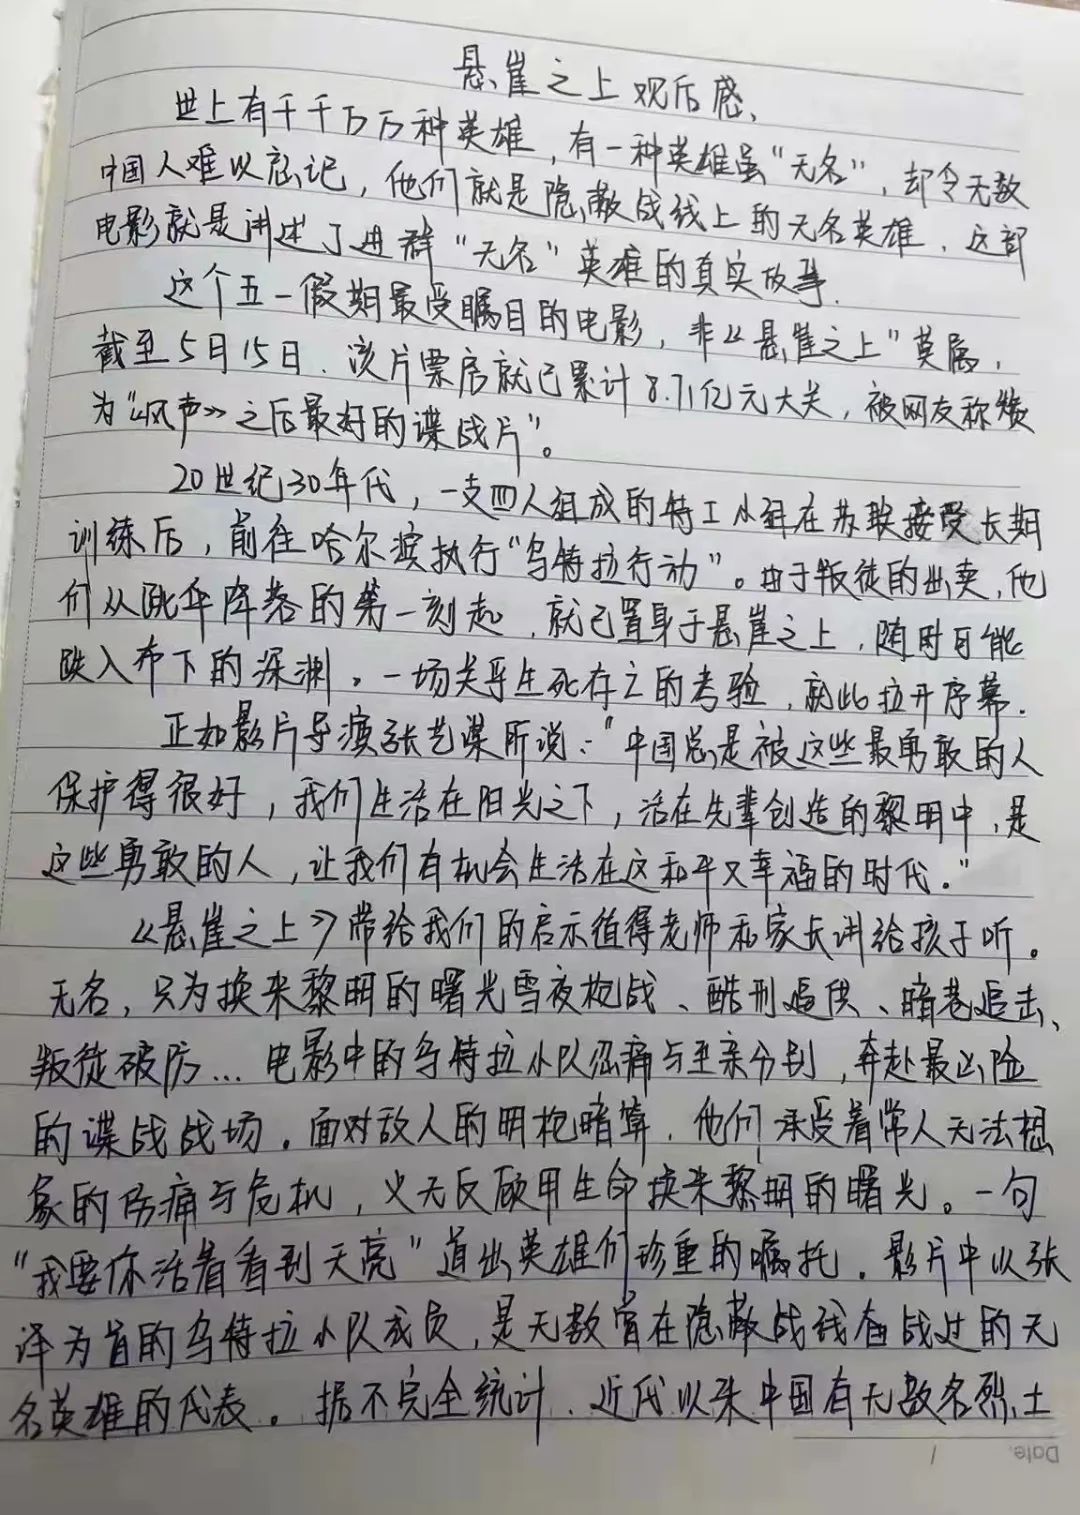 悬崖之上观后感、
世上有千千万万种英雄，有一种英雄虽“无名”，却令无数
中国人难以忘记，他们就是隐蔽战线上的无名英雄，这部
电影就是讲述了这群“无名”英雄的真实故事.
这个五一假期最受瞩目的电影，非《悬崖之上”莫属，
截至5月15日.该片票房就已累计8.71亿元大关，被网友称赞
为“《风声》之后最好的谍战片”。
20世纪30年代，一支四人组成的特工小组在苏联接受长期
训练后，前往哈尔滨执行“乌特拉行动”。由于叛徒的出卖，他
们从跳伞降落的第一刻起，就已置身于悬崖之上，随时可能
跌入布下的深渊。一场关乎生死存亡的考验，就此拉开序幕.
正如影片导演张艺谋所说：“中国总是被这些最勇敢的人
保护得很好，我们生活在阳光之下，活在先辈创造的黎明中，是
这些勇敢的人，让我们有机会生活在这和平又幸福的时代。”
《悬崖之上》带给我们的启示值得老师和家长讲给孩子听。
无名，只为换来黎明的曙光雪夜枪战、酷刑逼供、暗巷追击、
叛徒破防...电影中的乌特拉小队忍痛与至亲分别，奔赴最凶险
的谍战战场。面对敌人的明枪暗算，他们承受着常人无法想
象的伤痛与危机，义无反顾用生命换来黎明的曙光。一句
“我要你活着看到天亮”道出英雄们珍重的嘱托。影片中以张
译为首的乌特拉小队成员，是无数曾在隐蔽战线奋战过的无
名英雄的代表。据不完全统计.近代以来中国有无数名烈士
Date. /